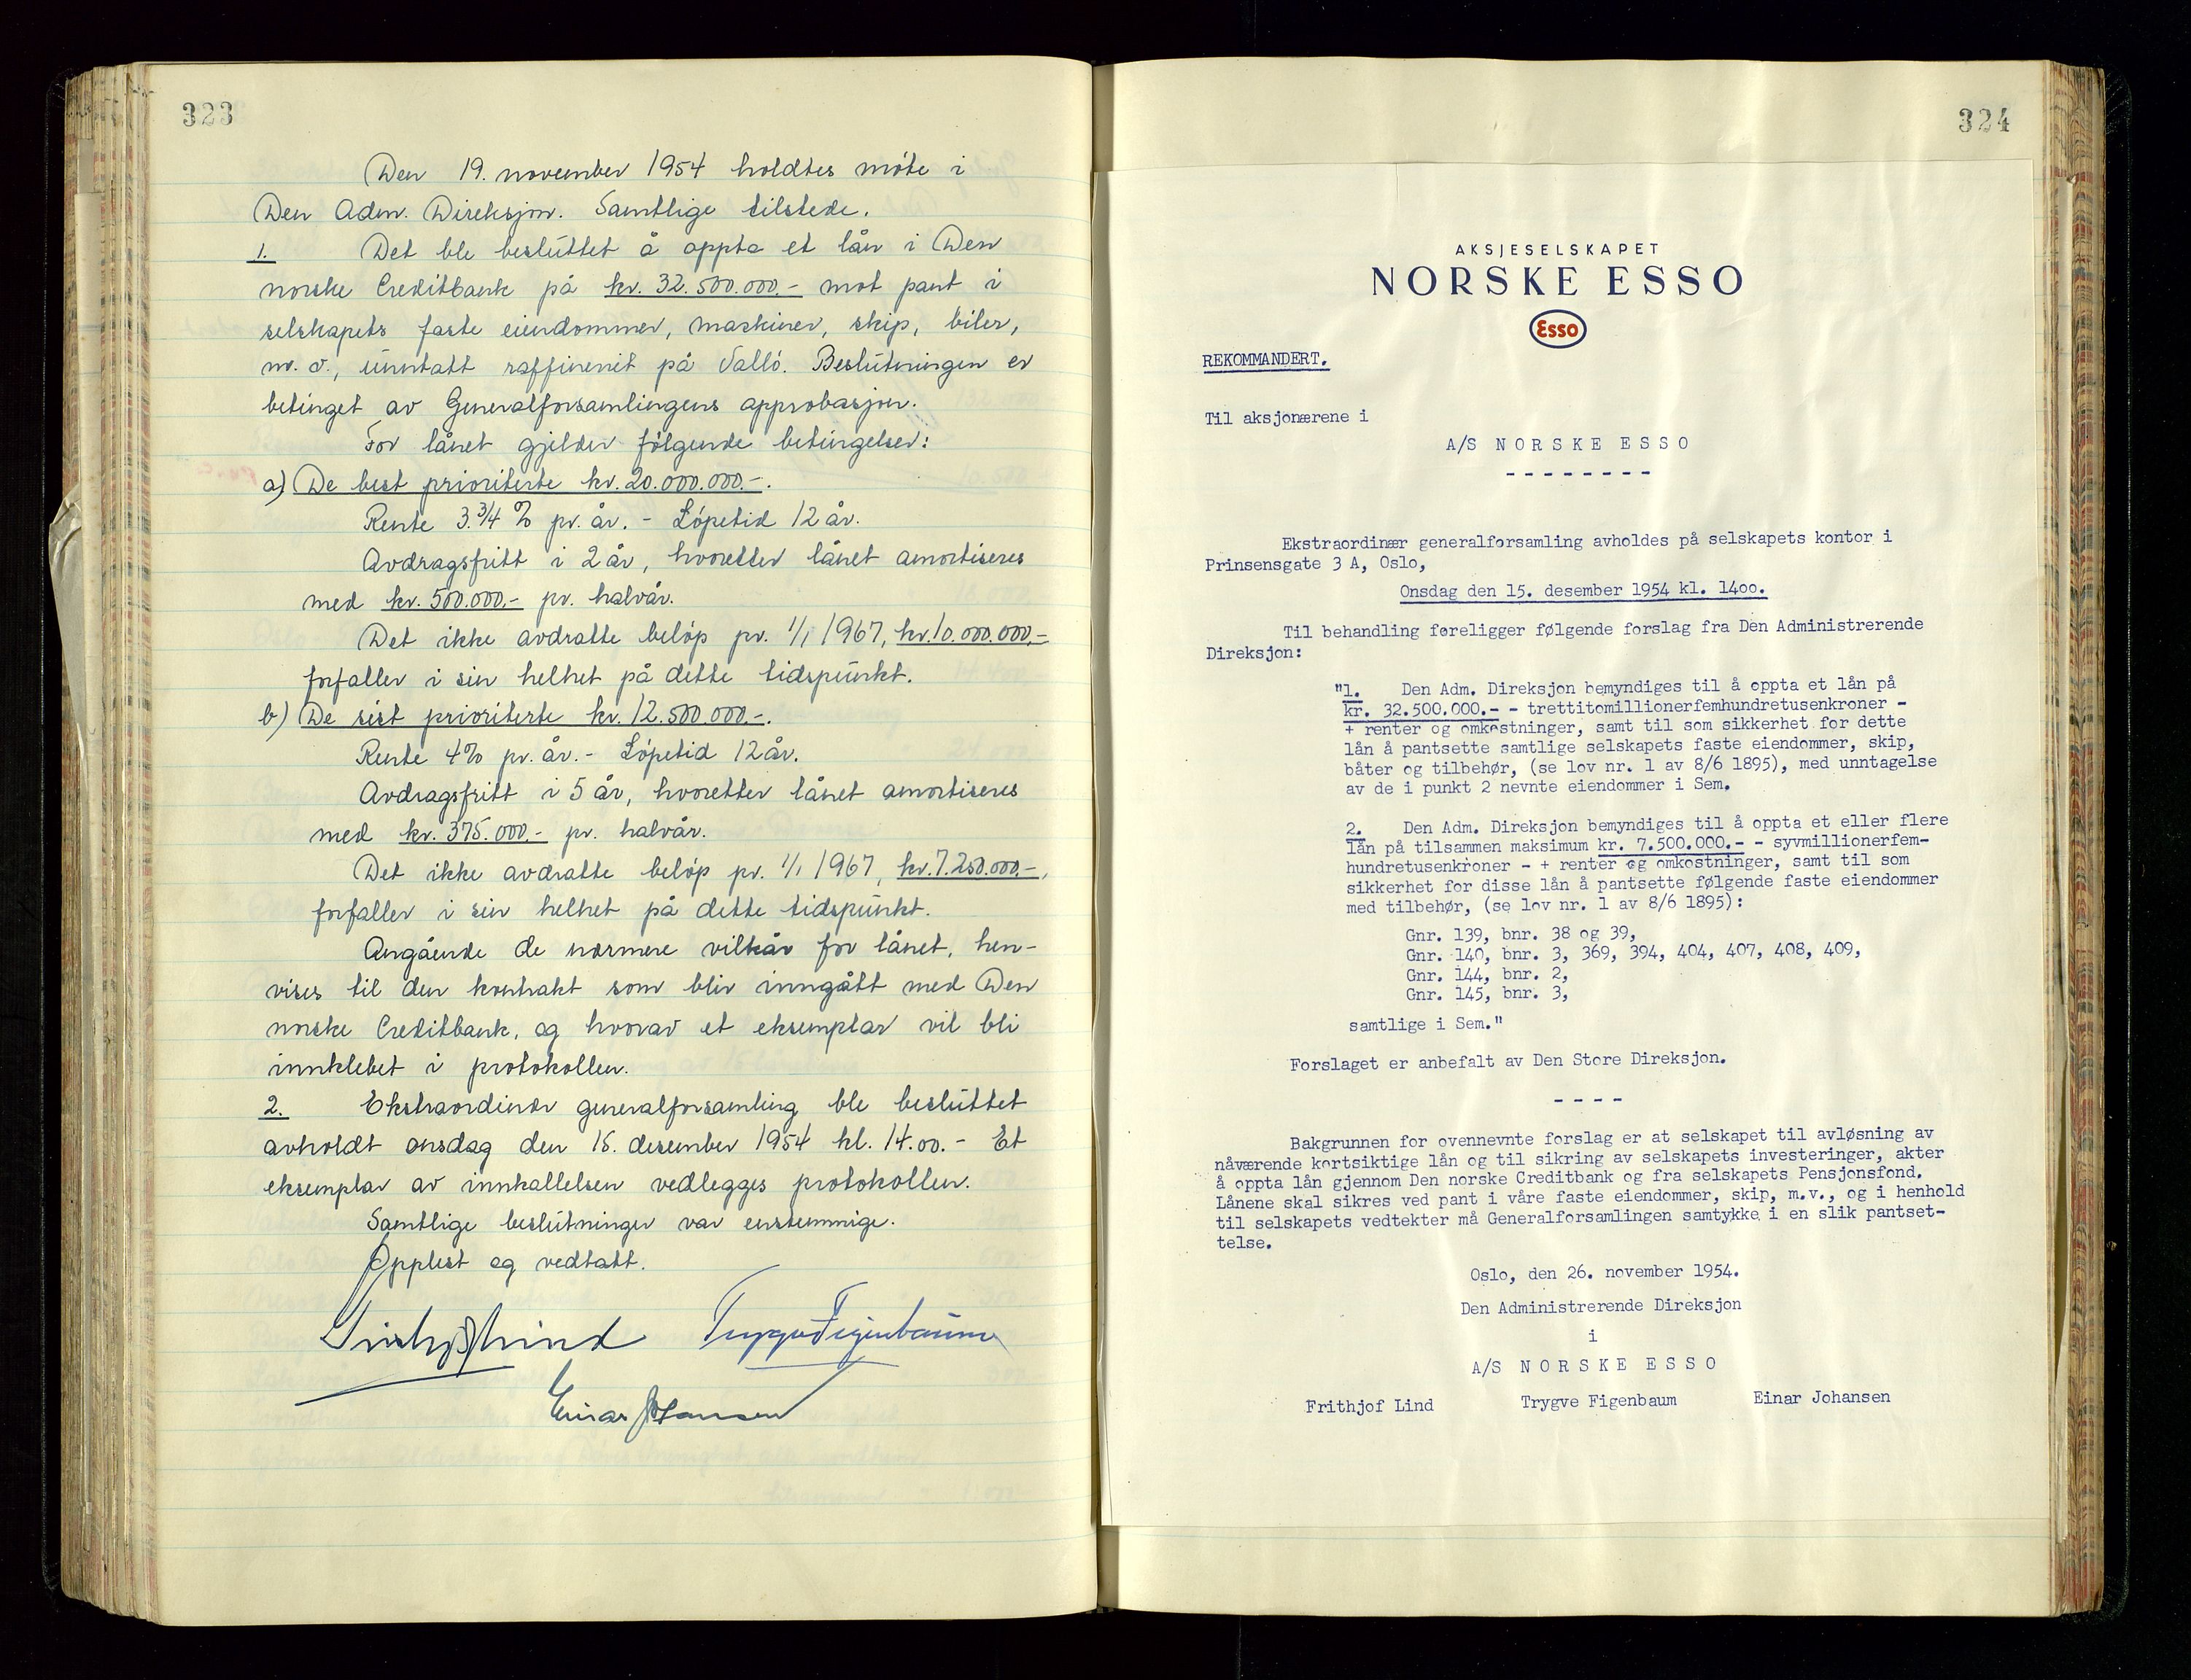 323
Den 19. november 1954 holdtes møte i
Den Adm. Direksjon. Samtlige tilstede.
1. Det ble besluttet å oppta et lån i Den
norske Creditbank på kr. 32.500.000.- mot pant i
selskapets faste eiendommer, maskiner, skip, biler,
m.v., unntatt raffineriet på Vallö. Beslutningen er
betinget av Generalforsamlingens approbasjon.
For lånet gjelder følgende betingelser:
a) De best prioriterte kr. 20.000.000.-.
Rente 3.3/4 % pr. år. - Löpetid 12 år.
Avdragsfritt i 2 år, hvoretter lånet amortiseres
med kr. 500.000.- pr. halvår.
Det ikke avdratte belöp pr. 1/1 1967, kr. 10.000.000.-
forfaller i sin helhet på dette tidspunkt.
b) De sist prioriterte kr. 12.500.000.-.
Rente 4% pr. år. - Löpetid 12 år.
Avdragsfritt i 5 år, hvoretter lånet amortiseres
med kr. 375.000.- pr. halvår.
Det ikke avdratte belöp pr. 1/1 1967, kr. 7.250.000.-,
forfaller i sin helhet på dette tidspunkt.
Angående de nærmere vilkår for lånet, hen-
vises til den kontrakt som blir inngått med Den
norske Creditbank, og hvorav et eksemplar vil bli
innklebet i protokollen.
2. Ekstraordinær generalforsamling ble besluttet
avholdt onsdag den 15. desember 1954 kl. 14.00. - Et
eksemplar av innkallelsen vedlegges protokollen.
Samtlige beslutninger var enstemmige.
Opplest og vedtatt.
Frithjof Lind Trygve Figenbaum
Einar Johansen
324
AKSJESELSKAPET
NORSKE ESSO
Esso
REKOMMANDERT.
Til aksjonærene i
A/S NORSKE ESSO
--------
Ekstraordinær generalforsamling avholdes på selskapets kontor i
Prinsensgate 3 A, Oslo,
Onsdag den 15. desember 1954 kl. 14oo.
Til behandling føreligger følgende forslag fra Den Administrerende
Direksjon:
"1. Den Adm. Direksjon bemyndiges til å oppta et lån på
kr. 32.500.000.- - trettitomillionerfemhundretusenkroner -
+ renter og omkostninger, samt til som sikkerhet for dette
lån å pantsette samtlige selskapets faste eiendommer, skip,
båter og tilbehør, (se lov nr. 1 av 8/6 1895), med unntagelse
av de i punkt 2 nevnte eiendommer i Sem.
2. Den Adm. Direksjon bemyndiges til å oppta et eller flere
lån på tilsammen maksimum kr. 7.500.000.- - syvmillionerfem-
hundretusenkroner - + renter og omkostninger, samt til som
sikkerhet for disse lån å pantsette følgende faste eiendommer
med tilbehør, (se lov nr. 1 av 8/6 1895):
Gnr. 139, bnr. 38 og 39,
Gnr. 140, bnr. 3, 369, 394, 404, 407, 408, 409,
Gnr. 144, bnr. 2,
Gnr. 145, bnr. 3,
samtlige i Sem."
Forslaget er anbefalt av Den Store Direksjon.
----
Bakgrunnen for ovennevnte forslag er at selskapet til avløsning av
nåværende kortsiktige lån og til sikring av selskapets investeringer, akter
å oppta lån gjennom Den norske Creditbank og fra selskapets Pensjonsfond.
Lånene skal sikres ved pant i våre faste eiendommer, skip, m.v., og i henhold
til selskapets vedtekter må Generalforsamlingen samtykke i en slik pantset-
telse.
Oslo, den 26. november 1954.
Den Administrerende Direksjon
i
A/S NORSKE ESSO
Frithjof Lind Trygve Figenbaum Einar Johansen